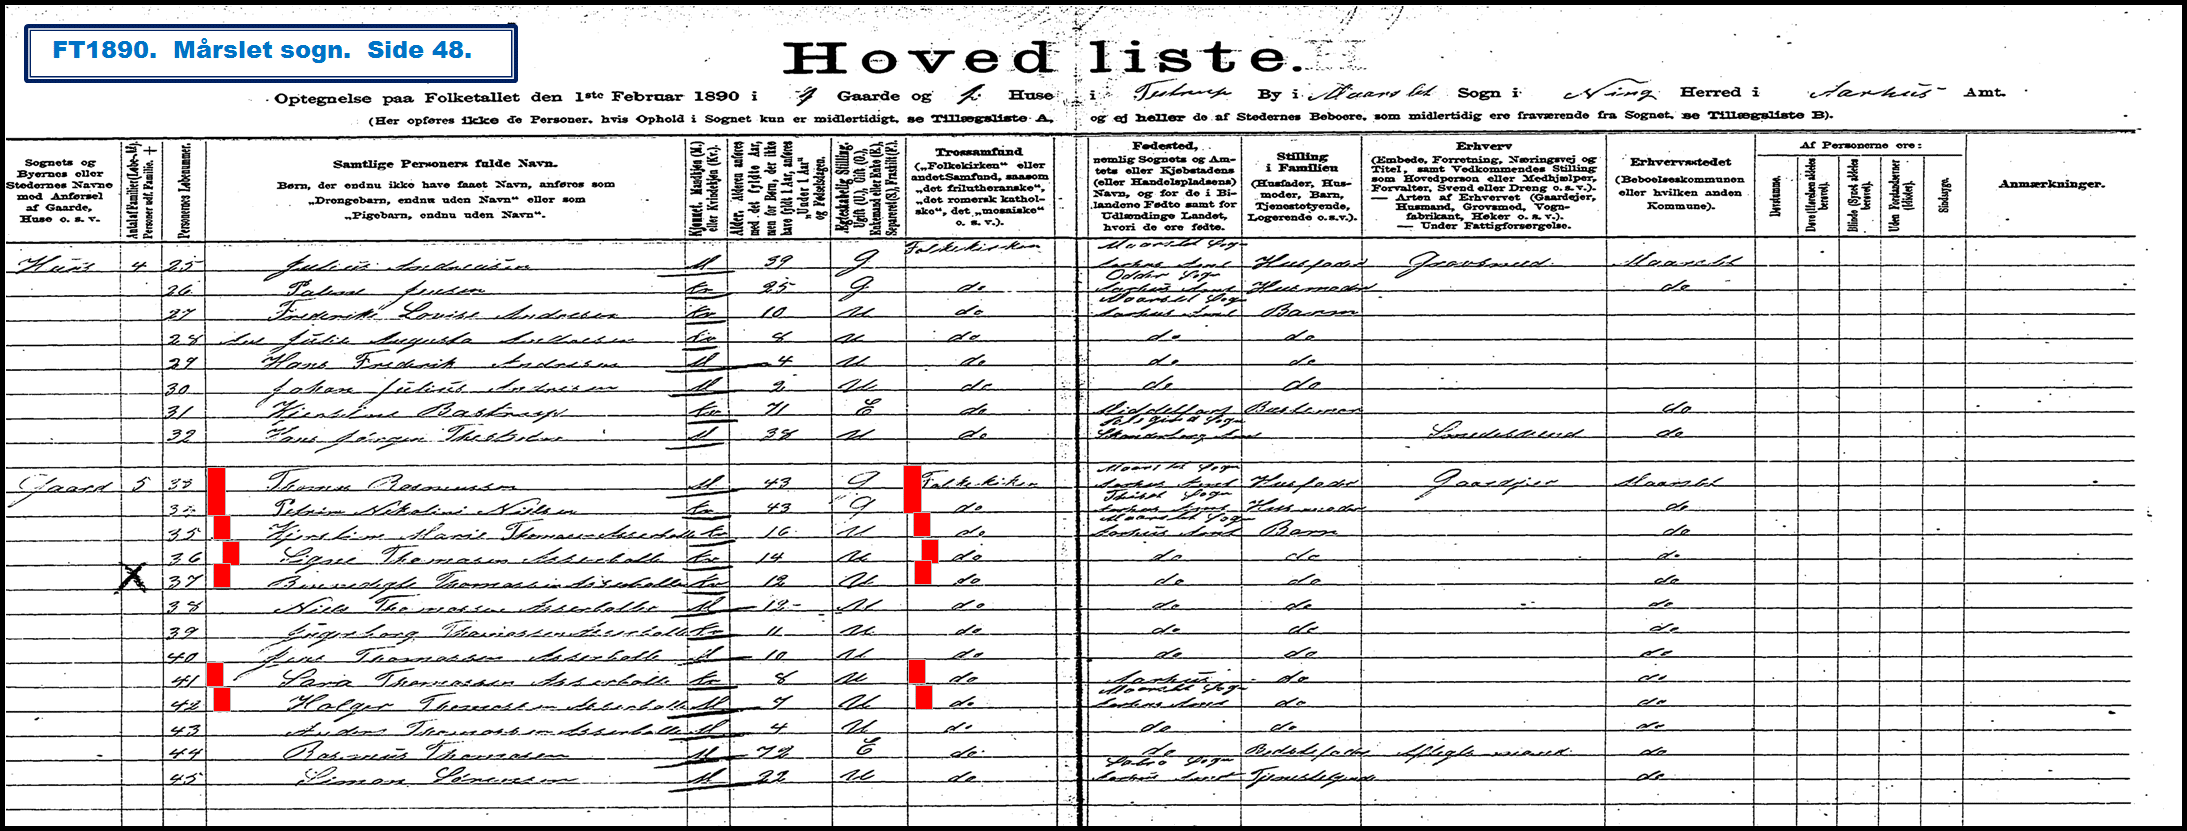 FT1890. Mårslet sogn. Side 48.
Hovedliste.
Optegnelse paa Folketallet den 1ste Februar 1890 i Gaarde og Huse i Testrup By i Maarslet Sogn i Ning Herred i Aarhus Amt.
(Her opføres ikke de Personer, hvis Ophold i Sognet kun er midlertidigt, se Tillægsliste A, og ej heller de af Stedernes Beboere, som midlertidig ere fraværende fra Sognet, se Tillægsliste B).
Sognets og Byernes eller Stedernes Navne med Anførsel af Gaarde, Huse o. s. v.
Personernes Løbenummer.
Samtlige Personers fulde Navn.
Børn, der endnu ikke have faaet Navn, anføres som „Drengebarn, endnu uden Navn“ eller som „Pigebarn, endnu uden Navn“.
Kjønnet. Mandkjøn (M.) eller Kvindekjøn (Kv.).
Alder. Alderen anføres med det fyldte Aar, men for Børn, der ikke have fyldt 1 Aar, anføres „Under 1 Aar“ og Fødselsdagen.
Ægteskabelig Stilling. Ugift (U.), Gift (G.), Enkemand eller Enke (E.), Separeret (S.), Fraskilt (F.).
Trossamfund („Folkekirken“ eller andet Samfund, saasom „det frilutheranske“, „det romersk katholske“, det „mosaiske“ o. s. v.).
Fødested, nemlig Sognets og Amtets eller Kjøbstadens (eller Handelspladsens) Navn, og for de i Bilandene Fødte samt for Udlændinge Landet, hvori de ere fødte.
Stilling i Familien (Husfader, Husmoder, Barn, Tjenestetyende, Logerende o. s. v.).
Erhverv (Embede, Forretning, Næringsvej og Titel, samt Vedkommendes Stilling som Hovedperson eller Medhjælper, Forvalter, Svend eller Dreng o. s. v.). — Arten af Erhvervet (Gaardejer, Husmand, Grovsmed, Vognfabrikant, Høker o. s. v.). — Under Fattigforsørgelse.
Erhvervsstedet (Beboelseskommunen eller hvilken anden Kommune).
Af Personerne ere:
Døvstumme.
Døve (Hørelsen aldeles berøvet).
Blinde (Synet aldeles berøvet).
Uden Forstandsevner (Idioter).
Sindssyge.
Anmærkninger.
Huus 4 25 Julius Andreasen M 39 G Folkekirken Maarslet Sogn Aarhus Amt Husfader Grovsmed Maarslet
26 Jensen Kv 25 G do Odder Sogn Aarhus Amt Husmoder do
27 Frederikke Lovise Andresen Kv 10 U do Maarslet Sogn Aarhus Amt Barn
28 Julie Augusta Andresen Kv 8 U do do do
29 Hans Frederik Andresen M 4 U do do do
30 Johan Julius Andresen M 2 U do do do
31 Kjerstine Bastrup Kv 71 E do Middelfart do
32 Hans Jørgen M 38 U do Sogn Skanderborg Amt Smedesvend do
Gaard 5 33 Thomas Rasmussen M 43 G Folkekirken Maarslet Sogn Aarhus Amt Husfader Gaardejer Maarslet
34 Petrine Nikoline Nielsen Kv 43 G do Sogn Aarhus Amt Husmoder do
35 Kjerstine Marie Thomasen Asserballe Kv 16 U do Maarslet Sogn Aarhus Amt Barn do
36 Signe Thomasen Asserballe Kv 14 U do do do do
X 37 Thomassen Asserballe Kv 12 U do do do do
38 Niels Thomassen Asserballe M 12 U do do do do
39 Ingerborg Thomassen Asserballe Kv 11 U do do do do
40 Jens Thomassen Asserballe M 10 U do do do do
41 Sara Thomassen Asserballe Kv 8 U do Aarhus do do
42 Holger Thomassen Asserballe M 7 U do Maarslet Sogn Aarhus Amt do do
43 Anders Thomassen Asserballe M 4 U do do do do
44 Rasmus Thomasen M 72 E do do Bedstefader Aftægtsmand do
45 Simon Sørensen M 22 U do Sabro Sogn Aarhus Amt Tjenestetyende do